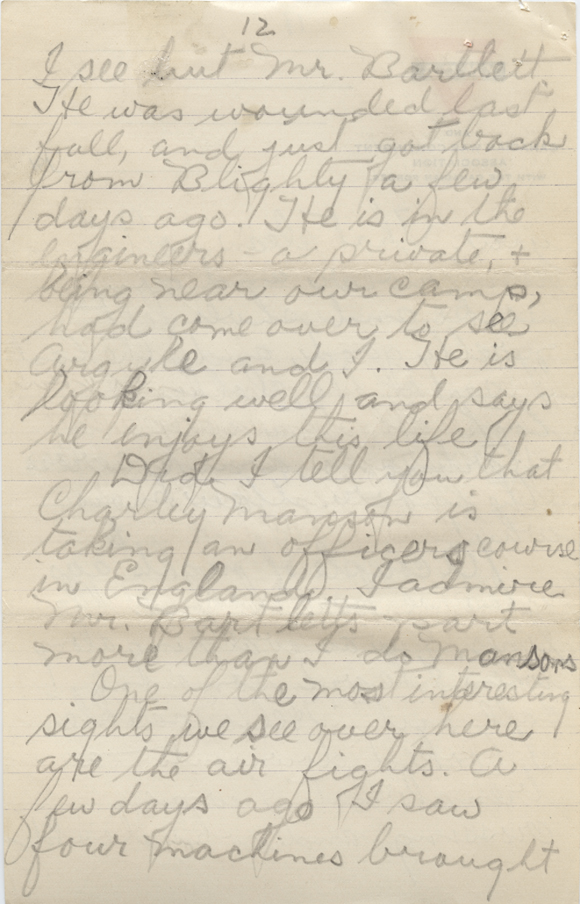 12
I see but Mr. Bartlett.
He was wounded last
fall, and just got back
from Blighty a few
days ago. He is in the
engineers - a private, +
being near our camp,
had come over to see
Argyle and I. He is
looking well, and says
he enjoys this life.
Did I tell you that
Charley Manson is
taking an officers course
in England. I admire
Mr. Bartletts part
more than I do Mansons
One of the most interesting
sights we see over here
are the air fights. A
few days ago I saw
four machines brought